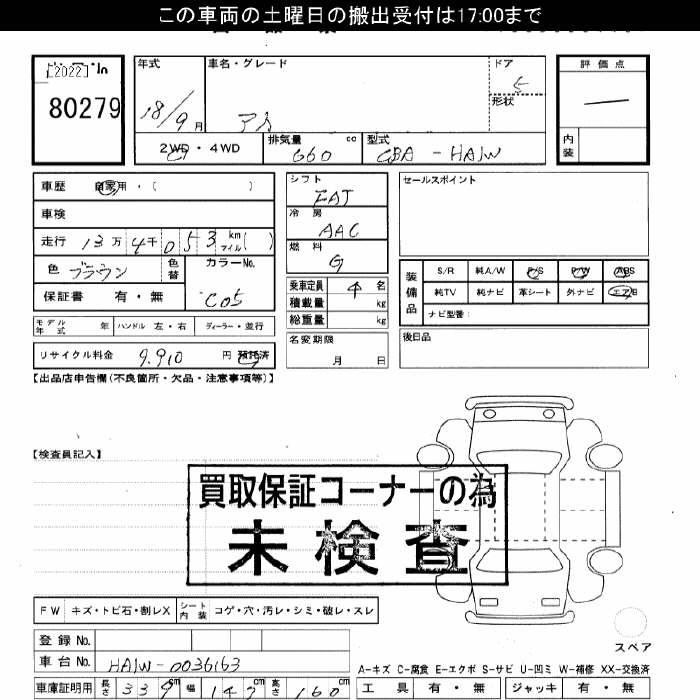 この車両の土曜日の搬出受付は17:00まで
[2022]
80279
年式
18/9月
車名・グレード
アイ
ドア
5
形状
評価点
内装
2WD・4WD
排気量
660 cc
型式
CBA - HA1W
車歴 自家用・( )
車検
走行 13万 4千 053 km マイル( )
色 ブラウン 色替
カラーNo.
C05
保証書 有・無
モデル年式 年 ハンドル 左・右 ディーラー・並行
リサイクル料金 9,910 円 預託済
シフト
FAT
冷房
AAC
燃料
G
乗車定員 4 名
積載量 kg
総重量 kg
名変期限
月 日
セールスポイント
装備品
S/R 純A/W P/S P/W ABS
純TV 純ナビ 革シート 外ナビ エアB
ナビ型番:
後日品
【出品店申告欄(不良箇所・欠品・注意事項等)】
【検査員記入】
買取保証コーナーの為
未検査
FW キズ・トビ石・割レX シート内装 コゲ・穴・汚レ・シミ・破レ・スレ
登録No.
車台No. HA1W-0036163
車庫証明用 長さ 339 cm 幅 147 cm 高さ 160 cm
スペア
A-キズ C-腐食 E-エクボ S-サビ U-凹ミ W-補修 XX-交換済
工具 有・無 ジャッキ 有・無